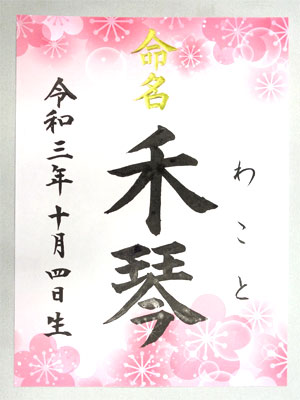 命名
わこと
禾琴
令和三年十月四日生